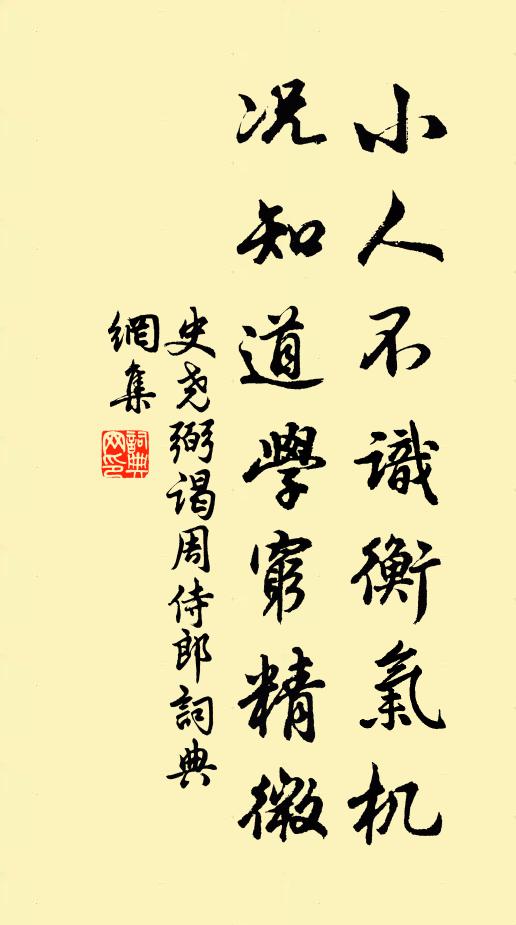 小人不識衡氣机
况知道學窮精微
史堯弼謁周侍郎詞典
網集
詞典
网印